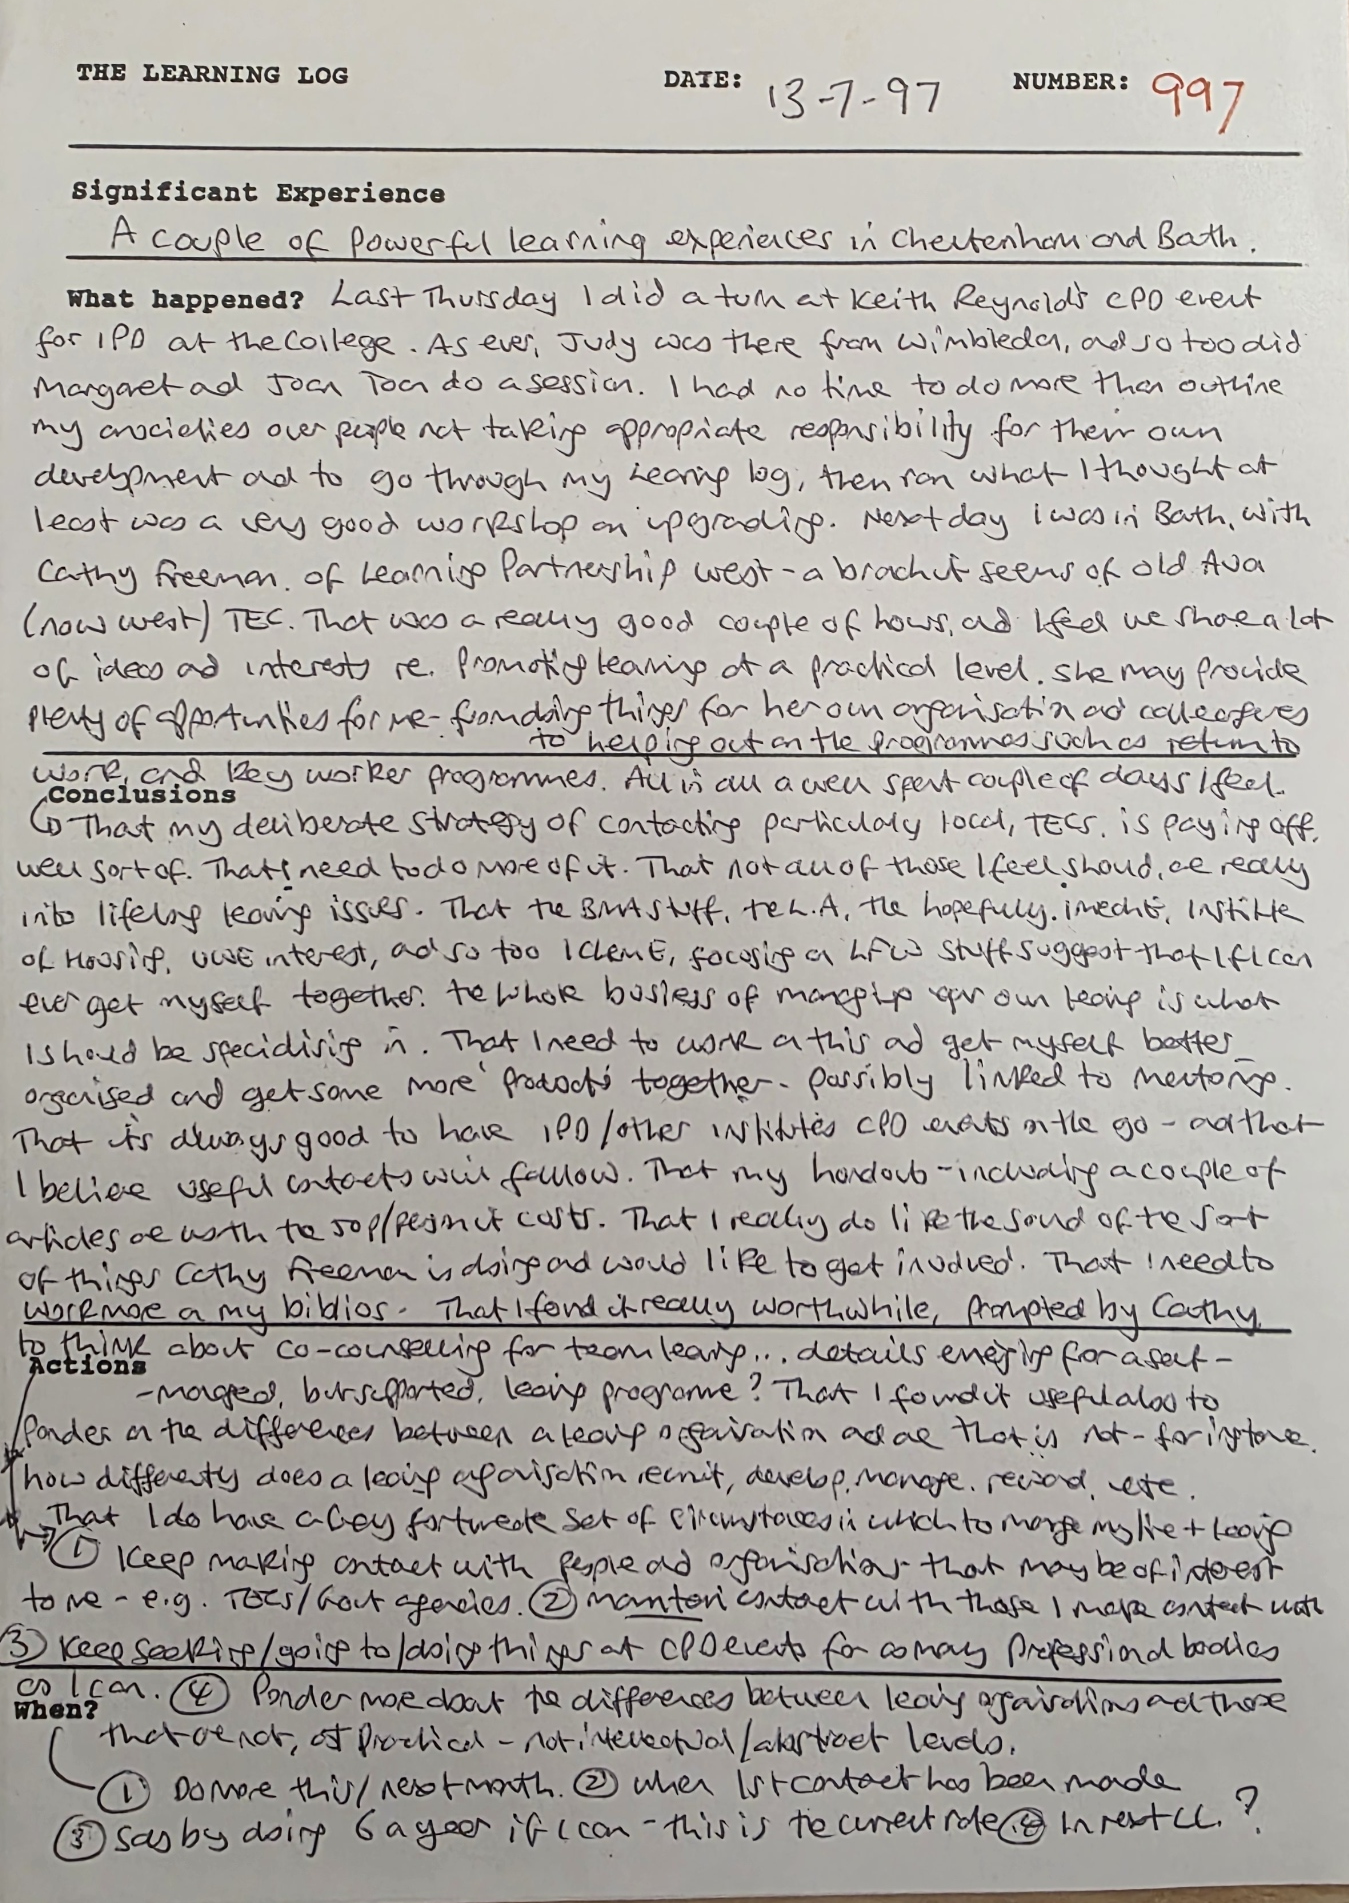 THE LEARNING LOG DATE: 13-7-97 NUMBER: 997
Significant Experience
A couple of powerful learning experiences in Cheltenham and Bath.
What happened? Last Thursday I did a turn at Keith Reynold's CPD event
for IPD at the College. As ever, Judy was there from Wimbledon, and so too did
Margaret and Joan Toon do a session. I had no time to do more than outline
my anxieties over people not taking appropriate responsibility for their own
development and to go through my learning log, then ran what I thought at
least was a very good workshop on upgrading. Next day I was in Bath, with
Cathy Freeman. of Learning Partnership West - a branch it seems of old Ava
(now west) TEC. That was a really good couple of hours, and I feel we share a lot
of ideas and interests re. promoting learning at a practical level. She may provide
plenty of opportunities for me - from doing things for her own organisation and colleagues
to helping out on the programmes such as return to
work, and key worker programmes. All in all a well spent couple of days I feel.
Conclusions
That my deliberate strategy of contacting particularly local, TECs, is paying off,
well sort of. That I need to do more of it. That not all of those I feel should, are really
into lifelong learning issues. That the BMA stuff, the L.A, the hopefully. imechE, Institute
of Housing, UWE interest, and so too IChemE, focusing on LFW stuff suggest that if I can
ever get myself together. the whole business of managing your own learning is what
I should be specialising in. That I need to work on this and get myself better
organised and get some more 'products' together - possibly linked to mentoring.
That it's always good to have IPD/other institutes CPD events on the go - and that
I believe useful contacts will follow. That my handouts - including a couple of
articles are worth the 50p/ costs. That I really do like the sound of the sort
of things Cathy Freeman is doing and would like to get involved. That I need to
work more on my biblios. That I found it really worthwhile, prompted by Cathy
to think about co-counselling for team learning... details emerging for a self-
Actions
-managed, but supported, learning programme? That I found it useful also to
ponder on the differences between a learning organisation and one that is not - for instance.
how differently does a learning organisation recruit, develop, manage. reward, etc.
That I do have a very fortunate set of circumstances in which to manage my life + learning
① Keep making contact with people and organisations that may be of interest
to me - e.g. TECs/Govt agencies. ② maintain contact with those I make contact with
③ Keep seeking/going to/doing things at CPD events for as many professional bodies
as I can. ④ Ponder more about the differences between learning organisations and those
When?
that are not, at practical - not intellectual/abstract levels.
① Do more this/next month. ② when 1st contact has been made
③ Say by doing 6 a year if I can - this is the current rate ④ In next LL. ?